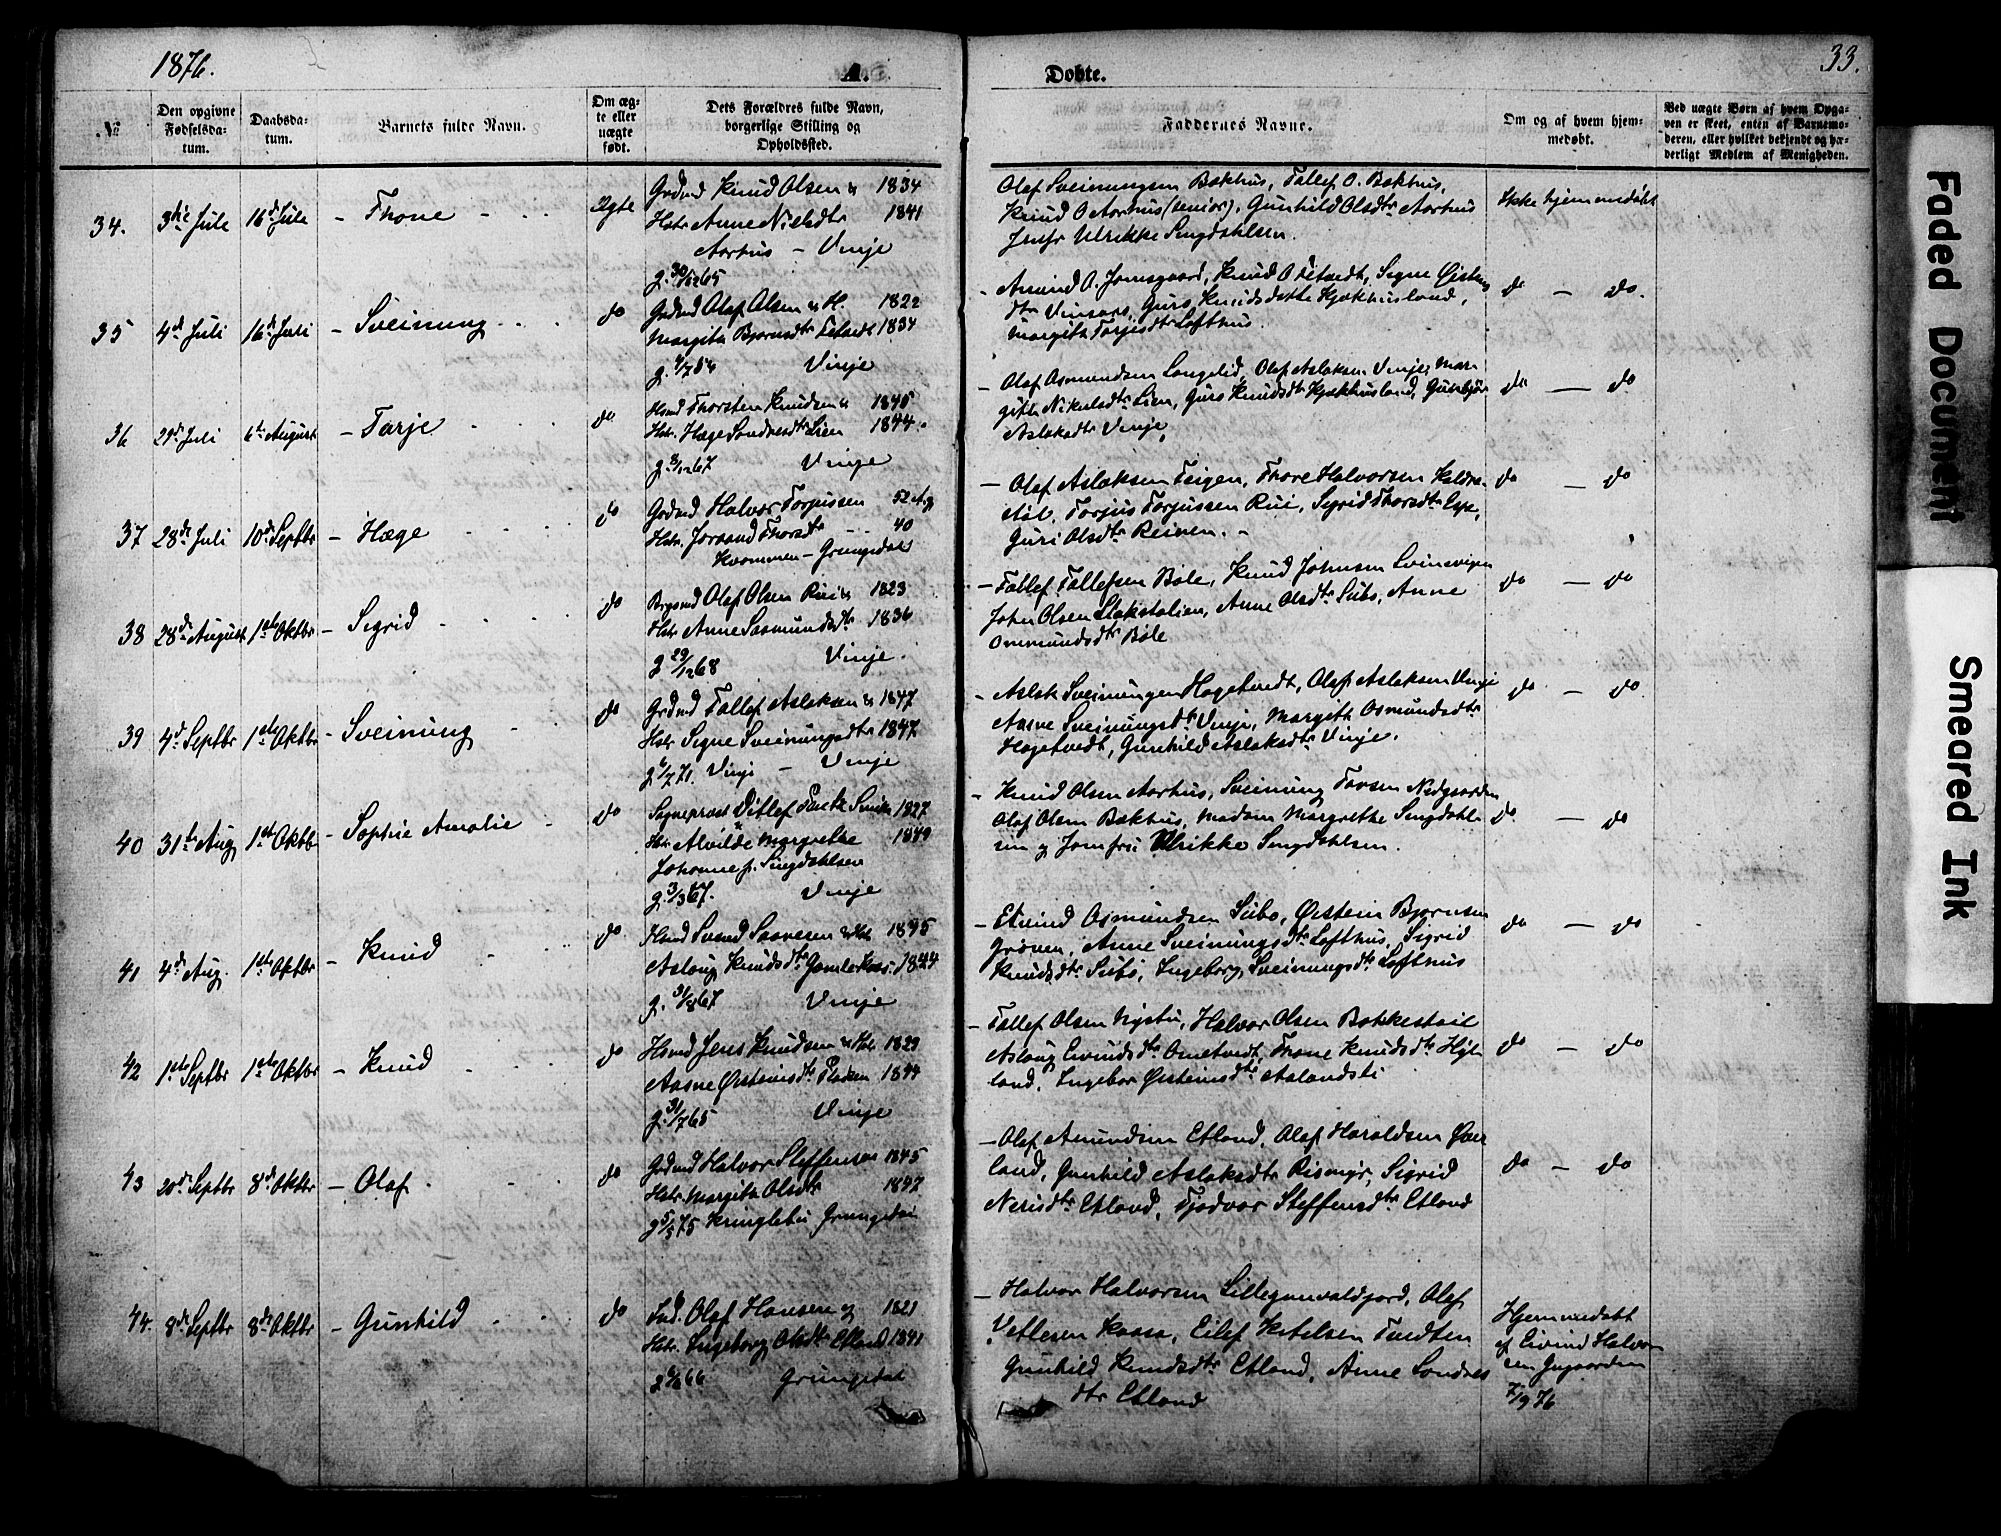 1876.
A.
Døbte.
33.
№
Den opgivne Fødselsda-tum.
Daabsda-tum.
Barnets fulde Navn.
Om æg-te eller uægte født.
Dets Forældres fulde Navn, borgerlige Stilling og Opholdssted.
Faddernes Navne.
Om og af hvem hjem-medøbt.
Ved uægte Børn af hvem Opga-ven er skeet, enten af Barnemo-deren, eller hvilket bekjendt og væ-derligt Medlem af Menigheden.
34. 3die Jule 16de Jule – Thone Ægte
Grdmd Knud Olsen & 1834
Hstr Anne Nielsdtr 1841
Aarhus – Vinje
g. 30/12 65
Olaf Sveinungsen Bakhus, Tallef O. Bakhus,
Knud O Aarhus (senior), Gunhild Olsdtr Aarhus
Jmfr Ulrikke Sengdahlsen.
Ikke hjemmedøbt
35 4de Juli 16de Juli – Sveinung do
Grdmd Olaf Olsen & H. 1822
Margita Bjørnsdtr 1834
Vinje
Margith Torjusdtr Lofthus.
do – do.
36 29de Juli 6te August – Tarje do
Hsmd Thorsten Knudsen & 1845
Hstr. Hæge Sondresdtr Lien 1844.
Vinje
– Olaf Osmundsen Langelid, Olaf Aslaksen Vinje, Mar
gith Nikulsdtr Lien, Guro Knudsdtr Kjækhusland, Gunbjør
Aslaksdtr Vinje,
do – do
37 28de Juli 10de Septbr – Hæge do
Grdmd Halvor Torjussen 52 Aar
Hstr. Joraand Thorsdtr – 40
Kvammen – Grungedal
– Olaf Aslaksen Teigen, Thore Halvorsen
Torjus Torjussen Rui, Sigrid Thorsdtr
Guri Olsdtr Reinen. –
do – do
38 28de August 1ste Oktbr – Sigrid do
Brgsmd Olaf Olsen Rui & 1823
Hstr Anne Saamundsdtr 1836
g 29/12 68 Vinje.
– Tallef Tallefsen Bøle, Knud Johnsen
John Olsen, Anne Olsdtr Subø, Anne
Ommundsdtr Bøle
do – do
39 4de Septbr 1ste Oktbr – Sveinung do
Grdmd Tallef Aslaksen & 1847
Hstr Signe Sveinungsdtr 1847
g 6/7 71. Vinje – Vinje
– Aslak Sveinungsen Hagetvedt, Olaf Aslaksen Vinje
Aasne Sveinungsdtr Vinje, Margith Osmundsdtr
Hagetvedt, Gunhild Aslaksdtr Vinje.
do – do
40 31te Aug 1ste Oktbr – Sophie Amalie do
Sogneprest Ditlef 1827
Hstr Alvilde Margrethe 1849
Johanne f. Sengdahlsen
g 3/3 67. Vinje
– Knud Olsen Aarhus, Sveinung Tovsen Nedgaarden
Olaf Olsen Bakhus, Madam Margrethe Sengdahl
sen og Jomfru Ulrikke Sengdahlsen.
do – do
41 4de Aug. 1ste Oktbr – Knud do
Aslaug Knudsdtr 1844
g. 31/8 67 Vinje
– Eivind Osmundsen Subø, Øistein Bjørnsen
Grøven, Anne Sveinungsdtr Lofthus, Sigrid
Knudsdtr Subø, Ingeborg Sveinungsdtr Lofthus
do – do
42 1ste Septbr 1ste Oktbr – Knud do
Hsmd Jens Knudsen & Hstr 1829
Aasne Øisteinsdtr Pladsen 1844
g. 31/7 65 Vinje
– Tallef Olsen Nystu, Halvor Olsen Bakkestøil
Aslaug Eivindsdtr Ometvedt, Thone Knudsdtr
land, Ingebor Øisteinsdtr Aslandsti
do – do
43 20de Septbr 8de Oktbr – Olaf do
Grdmd Halvor Steffensen 1845
Hstr. Margita Olsdtr 1847
g 5/3 75 Kringlebu Grungedal
– Olaf Amundsen Etland, Olaf Haraldsen
land, Gunhild Aslaksdtr Rismyr, Sigrid
Nerisdtr Etland, Tjodvor Steffensdtr Etland
do – do
44. 8de Septbr 8de Oktbr – Gunhild do
Ind. Olaf Hansen og 1821
Hstr. Ingeborg Olsdtr Etland 1841
Grungedal
– Halvor Halvorsen, Olaf
Vetlesen Kaasa, Eilef Ketelsen Tvedten
Gunhild Knudsdtr Etland, Anne Sondres
dtr Etland
Hjemmedøbt
af Eivind Halvor
sen
7/9 76
Faded Document
Smeared Ink